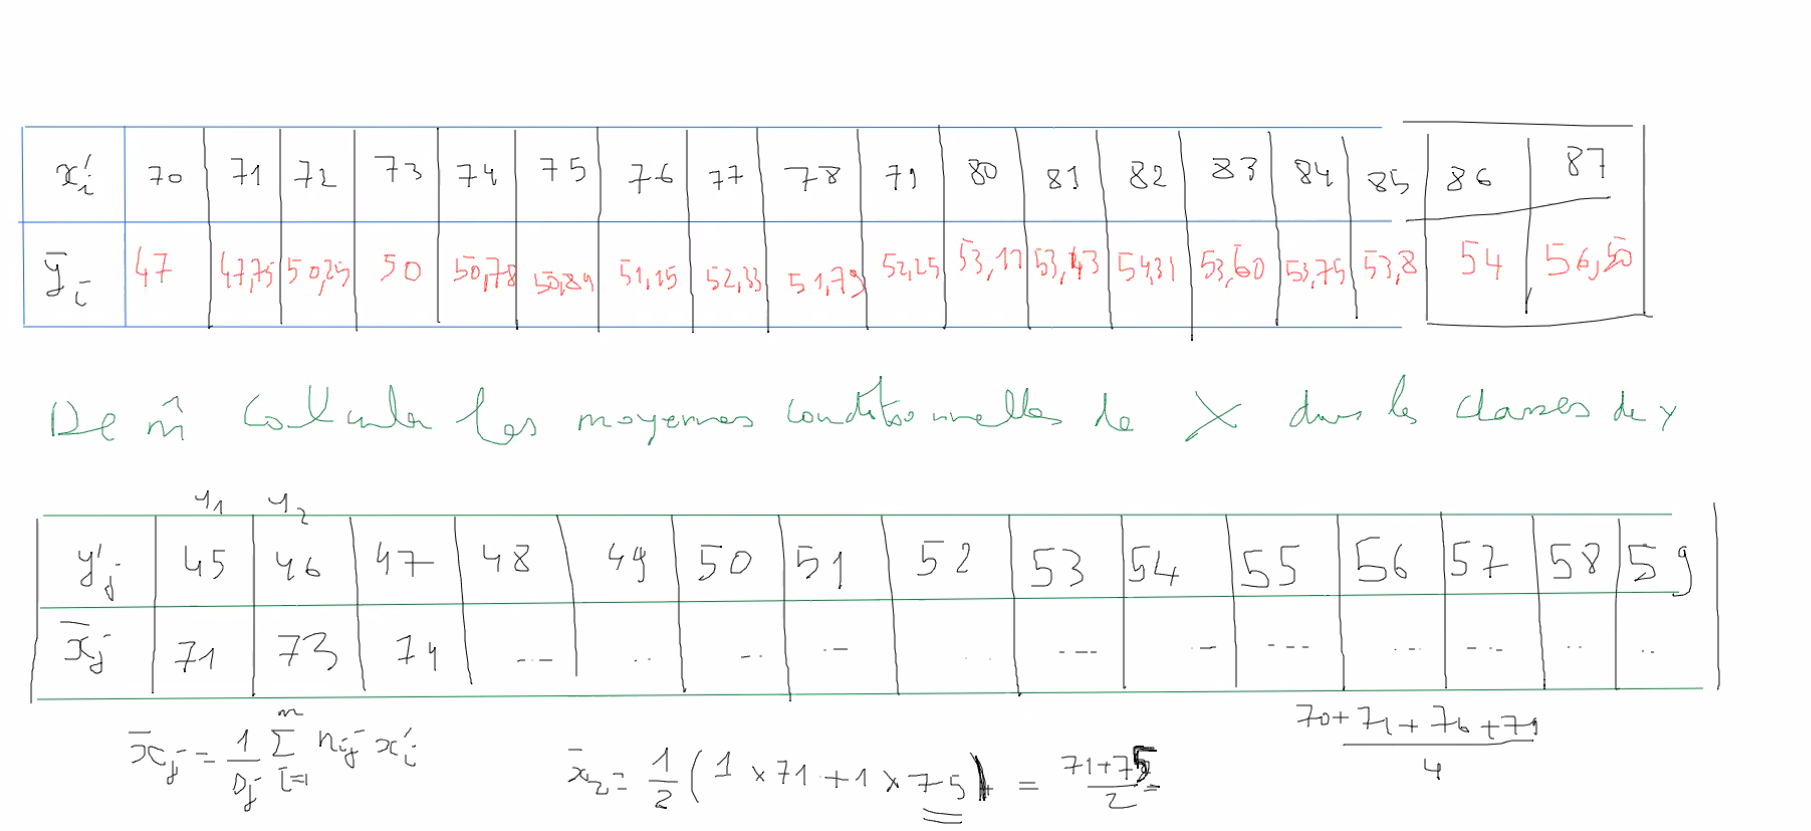 x'i 70 71 72 73 74 75 76 77 78 79 80 81 82 83 84 85 86 87
ȳi 47 47,75 50,25 50 50,78 50,89 51,15 52,33 51,79 52,25 53,17 53,43 54,31 53,60 53,75 53,8 54 56,50
De m̂ Calculer les moyennes conditionnelles de X dans les classes de Y
y1 y2
y'j 45 46 47 48 49 50 51 52 53 54 55 56 57 58 59
x̄j 71 73 74 ... .. ... ... .. ... ... ... ... ... .. ..
x̄j = 1/nj Σ(i=1 à m) nij x'i
x̄2 = 1/2 (1 × 71 + 1 × 75) = (71+75)/2 =
(70+71+76+79)/4